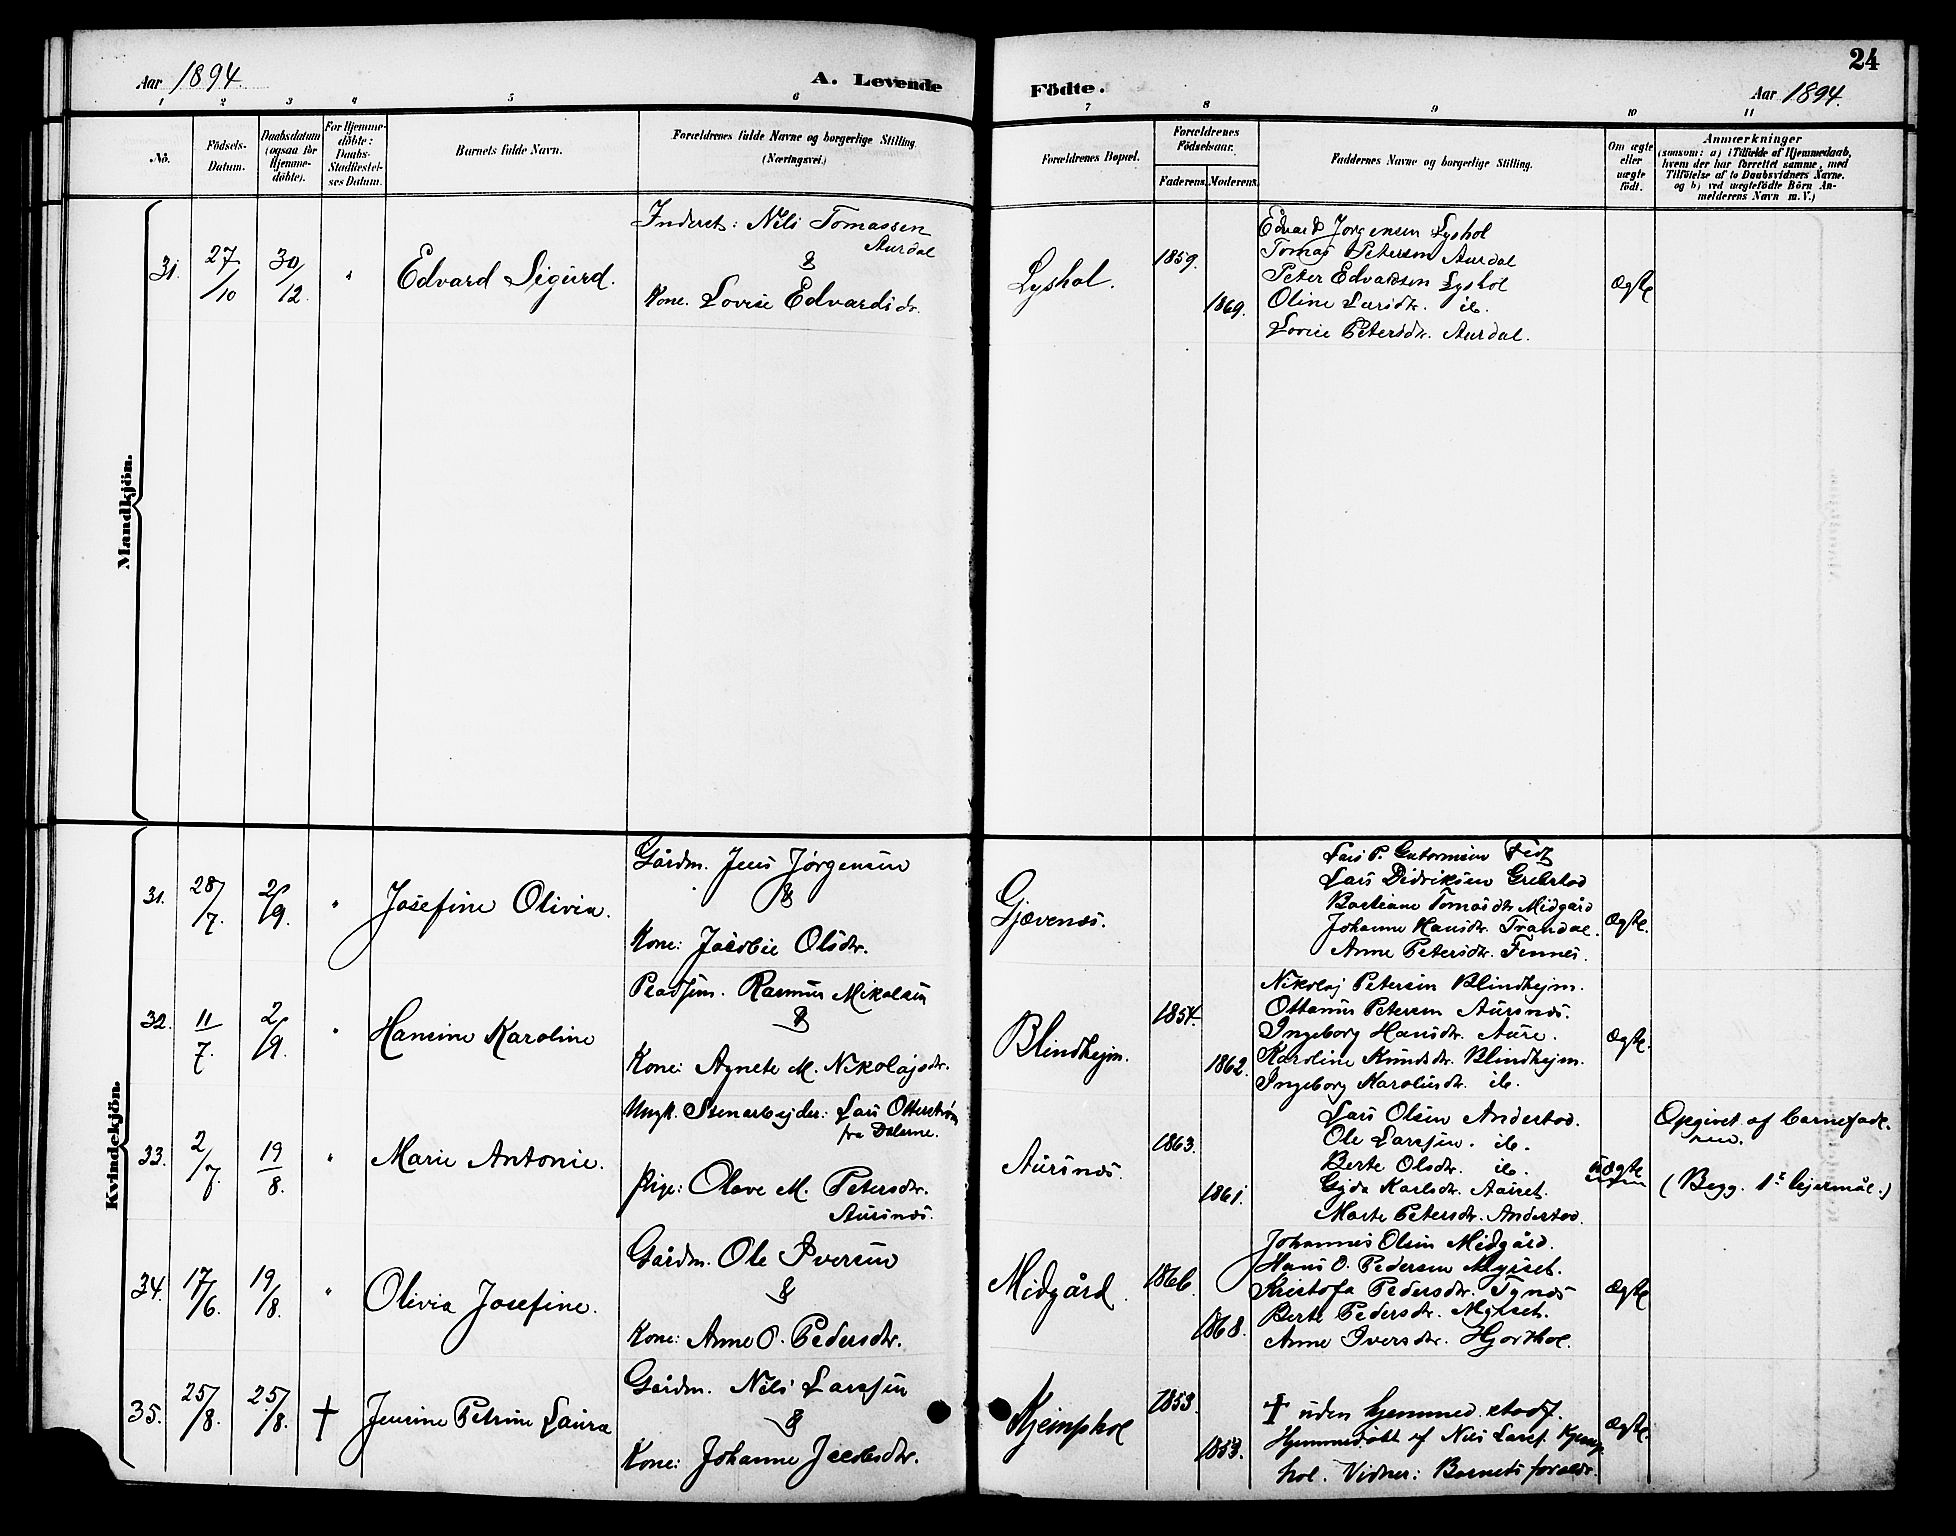 24
Aar 1894.
A. Levende
Födte.
Aar 1894.
1 2 3 4 5 6 7 8 9 10 11
No.
Födsels-
Datum.
Daabsdatum
(ogsaa for
Hjemme-
döbte).
For Hjemme-
döbte:
Daabs-
Stadfæstel-
ses Datum.
Barnets fulde Navn.
Forældrenes fulde Navne og borgerlige Stilling
(Næringsvei.)
Forældrenes Bopæl.
Forældrenes
Födselsaar.
Faderens. Moderens.
Faddernes Navne og borgerlige Stilling.
Om ægte
eller
uægte
födt.
Anmærkninger
(saasom: a) i Tilfælde af Hjemmedaab,
hvem der har forrettet samme, med
Tilföielse af to Daabsvidners Navne.
og b) ved uægtefödte Börn An-
melderens Navn m. V.)
Mandkjön.
31. 27/10 30/12. " Edvard Sigurd.
Inderst: Nils Tomassen
Aurdal
&
Kone. Lovise Edvardsdr.
Lyshol.
1859.
1869.
Edvard Jorgensen Lyshol
Tomas Petersen Aurdal
Peter Edvardsen Lyshol
Oline Larsdtr. ib.
Lovise Petersdtr. Aurdal.
Ægte
Kvindekjön.
31. 28/7. 2/9. " Josefine Olivia.
Gårdm. Jens Jørgensen
&
Kone: Jacobie Olsdtr.
Gjævenes.
Lars P. Gutormsen
Lars Didriksen Grebstad
Bastiane Tomasdtr Midgård
Johanne Hansdtr. Trandal.
Anne Petersdtr. Fennes.
Ægte.
32. 11/7. 2/9. " Hansine Karoline
Pladsm. Rasmus Mikalsen
&
Kone: Agnete M. Nikolajsdtr.
Blindhejm.
1854.
1862.
Nikolaj Petersen Blindhejm.
Ottanus Petersen Aursnes.
Ingeborg Hansdtr. Aure.
Karoline Knudsdtr. Blindhejm.
Ingeborg Karolusdtr. ib.
Ægte.
33. 2/7. 19/8. " Marie Antonie.
Ungk. Stenarbejder: Lars Otterstrøm
fra Dalerne.
Pige: Olave M. Petersdtr.
Aursnes.
Aursnes.
1863.
1861.
Lars Olsen Andestad.
Ole Larssen. ib.
Berte Olsdtr. ib.
Gyda Karlsdtr. Aurset.
Marte Petersdtr. Andestad.
Uægte
Opgivet af barnefade-
ren.
(Begg. 1ste lejermål.)
34. 17/6. 19/8. " Olivia Josefine.
Gårdm. Ole Iversen
&
Kone: Anne O. Pedersdtr.
Midgård.
1866.
1868.
Johannes Olsen Midgård.
Hans O. Pedersen Myrset.
Kristofa Pedersdtr. Tynes
Berte Pedersdtr. Myrset.
Anne Iversdtr. Hjorthol.
Ægte
35. 25/8. 25/8. † Jensine Petrine Laura
Gårdm. Nils Larssen
&
Kone: Johanne Jacobsdtr.
Kjemphol
1853.
1853.
† uden hjemmed. stadf.
Hjemmedøbt af Nils Larss. Kjemp
hol. Vidner: Barnets forældr.
Ægte.